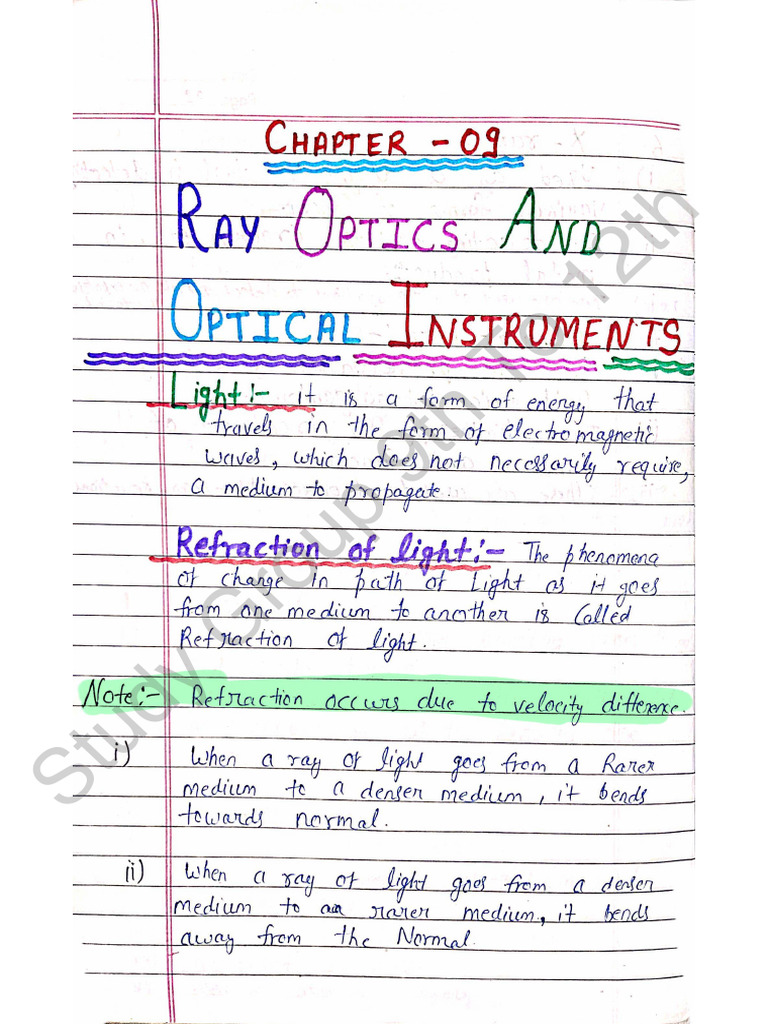 CHAPTER - 09
RAY OPTICS AND
OPTICAL INSTRUMENTS
Light:- it is a form of energy that
travels in the form of electromagnetic
waves, which does not necessarily require,
a medium to propagate.
Refraction of light:- The phenomena
of change in path of Light as it goes
from one medium to another is called
Refraction of light.
Note:- Refraction occurs due to velocity difference.
i) When a ray of light goes from a Rarer
medium to a denser medium, it bends
towards normal.
ii) When a ray of light goes from a denser
medium to a rarer medium, it bends
away from the Normal.
Study Group 9th To 12th